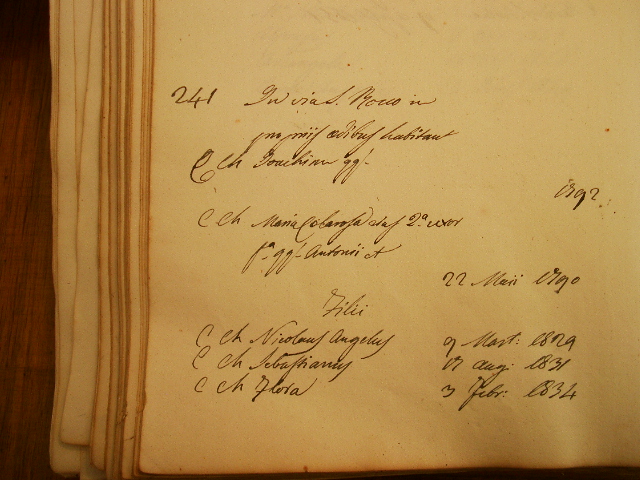 241 In via S. Rocco in
propriis ædibus habitant
C Ch Joachim qq:
1792
C Ch Maria 2.ª uxor
f.ª qq: Antonii et
22 Maii 1790
Filii
C Ch Nicolaus Angelus 9 Mart: 1829
C Ch Sebastianus 17 aug: 1831
C Ch Flora 3 Febr: 1834